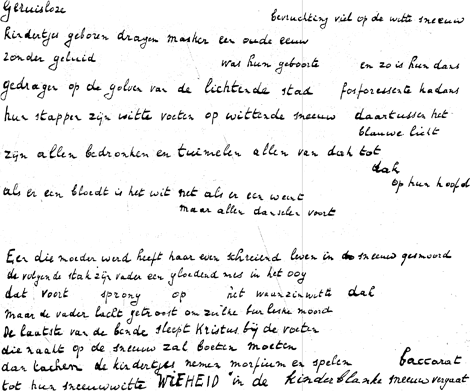 Geruisloze bevruchting viel op de witte sneeuw
Kindertjes geboren dragen masker een oude eeuw
zonder geluid was hun geboorte en zo is hun dans
gedragen op de golven van de lichtende stad fosforessente kadans
hun stappen zijn witte voeten op wittende sneeuw daartussen het
blauwe licht
zijn allen bedronken en tuimelen allen van dak tot
dak
op hun hoofd
als er een bloedt is het wit net als er een weent
maar allen danselen voort
Een die moeder werd heeft haar even schreiend leven in sneeuw gesmoord
de volgende stak zijn vader een gloeiend mes in het oog
dat voort sprong op het waanzinwitte dak
maar de vader lacht getroost om zulke burleske moord
De laatste van de bende sleept Kristus bij de voeten
die naakt op de sneeuw zal boeten moeten
dan kachem de kindertjes nemen morfium en spelen baccarat
tot hun sneeuwwitte WIEHEID in de Kinderblanke sneeuw vergaat